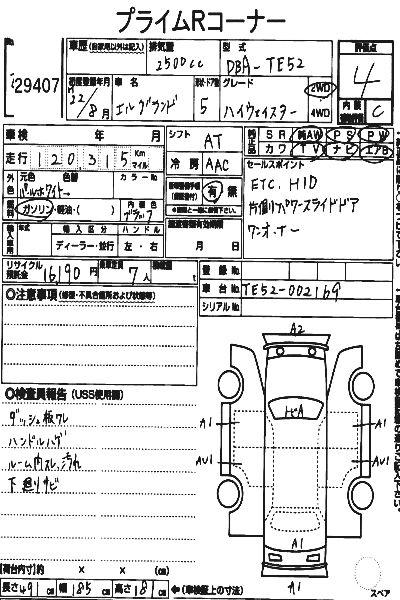 プライムRコーナー
29407
車歴 (自家用以外は記入)
排気量 2500cc
型式 DBA-TE52
評価点 4
22/8月
車名 エルグランド
ドア 5
グレード ハイウェイスター
2WD
4WD
内装 C
車検 年 月
シフト AT
SR 純AW PS PW
カワ TV ナビ エアB
走行 120315 Km
マイル
冷房 AAC
セールスポイント
ETC. HID
片側パワースライドドア
ワンオーナー
外装 元色 色替 カラーNo
パールホワイト→
燃料 ガソリン・軽油・( ) 内装色 ブラック
有 無
年式 輸入区分 ハンドル
ディーラー・並行 左・右
月 日
リサイクル預託金 16190円
7人
登録No.
車台No. TE52-002169
シリアルNo.
○注意事項 (修復・不具合箇所および状態等)
○検査員報告 (USS使用欄)
ダッシュ板ワレ
ハンドルハゲ
ルーム内スレ、汚れ
下廻りサビ
A2
トビA
A1
A1
AU1
AU1
A1
A1
スペア
(荷台内寸) 約 × × (cm)
長さ 491 cm 幅 185 cm 高さ 181 cm ←(車検証上の寸法)